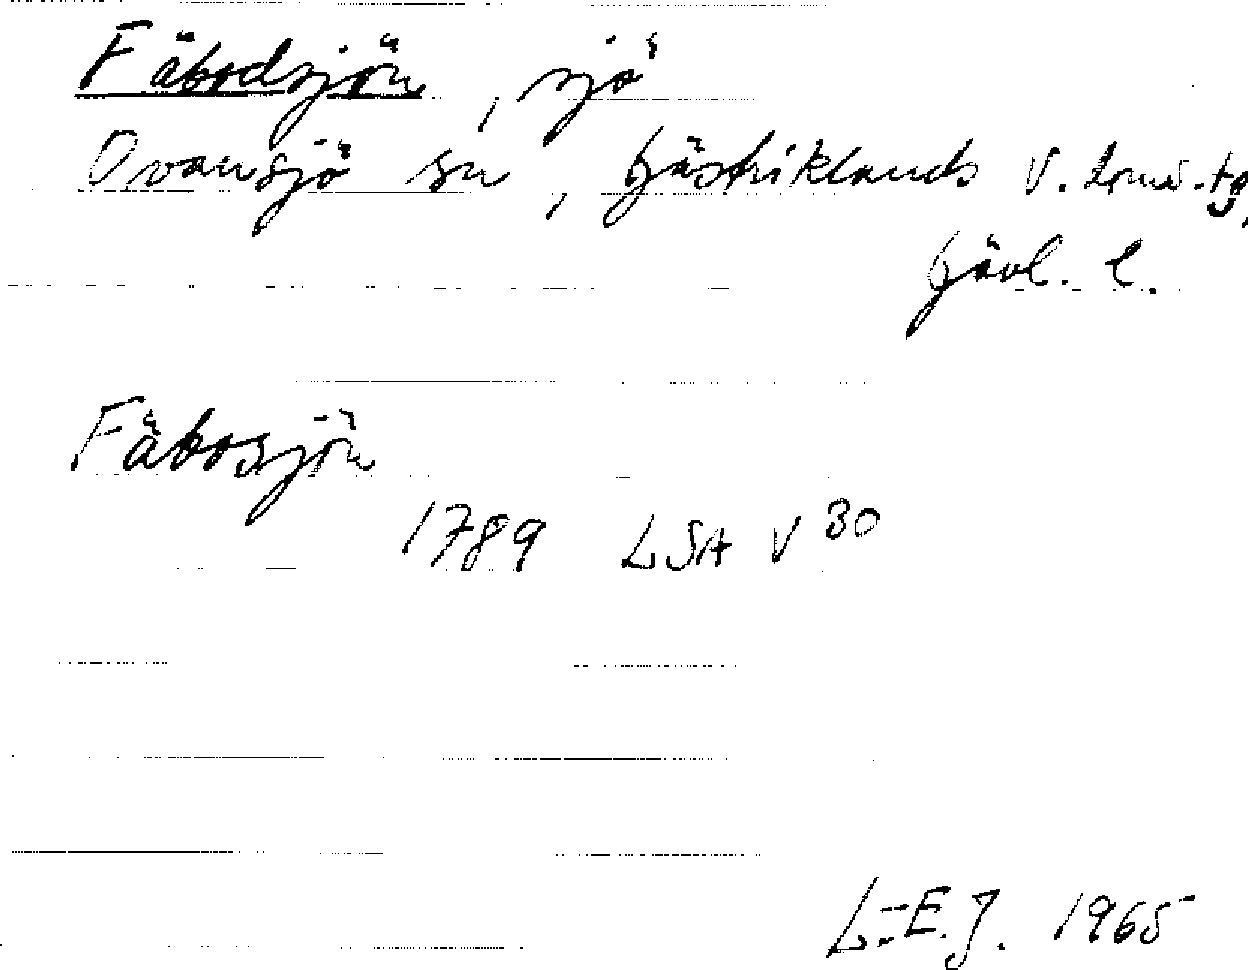 Fäbodsjön, sjö
Ovansjö sn, Gästriklands v. doms.-tg,
Gävl. l.
Fäbosjön
1789 LSA V 30
L.-E.J. 1965